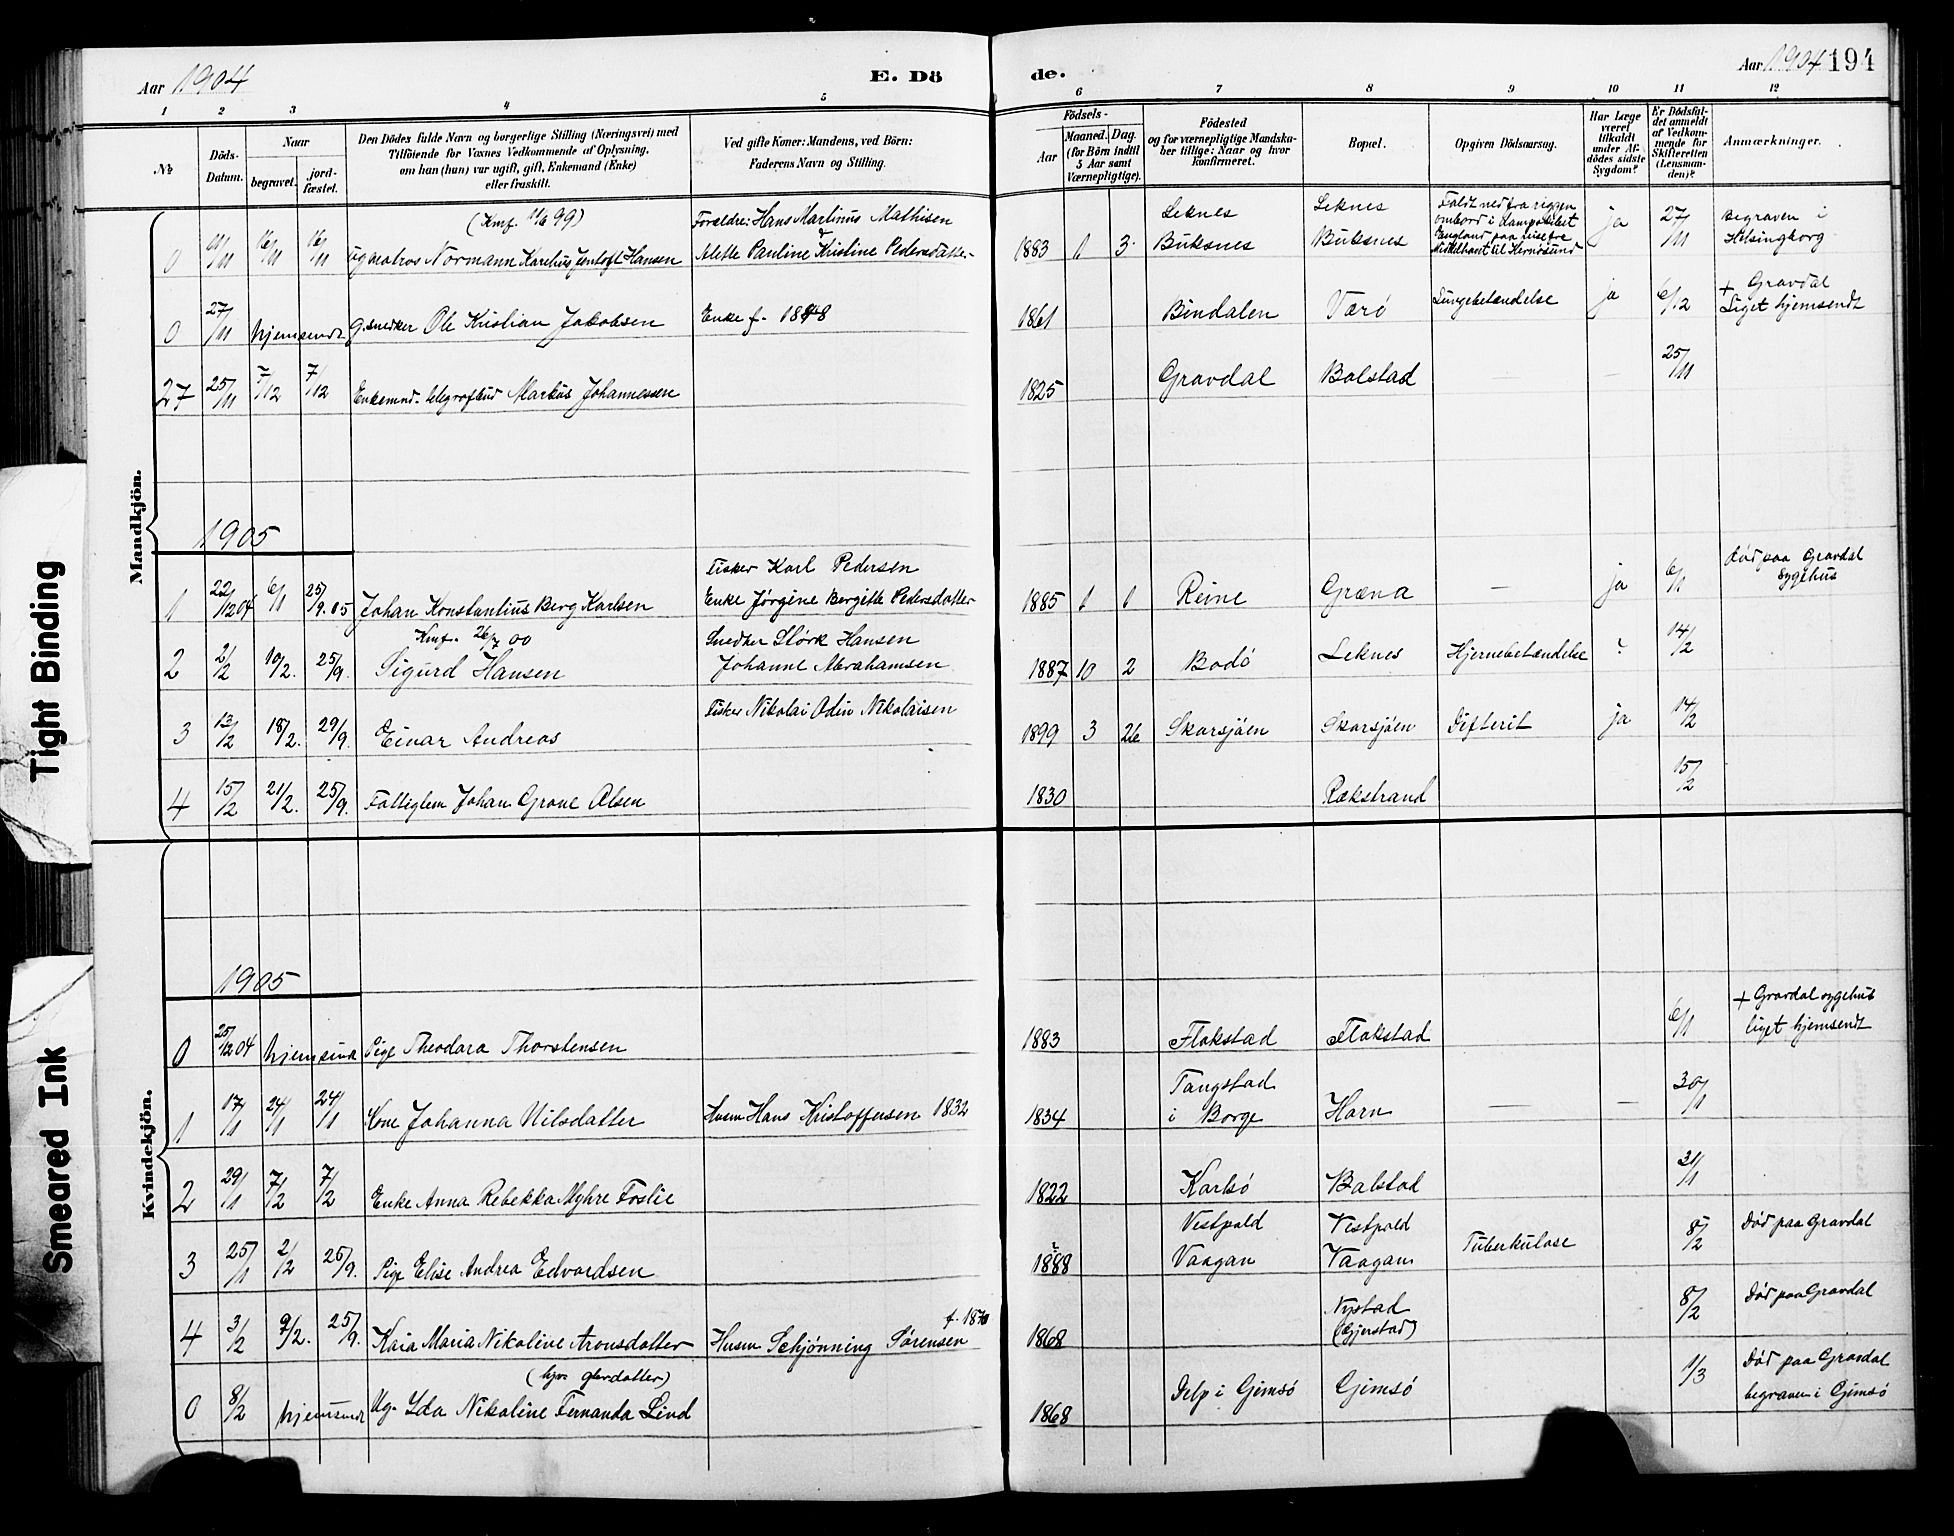 Aar 1904
E. Dö
de.
Aar 1904
194
1 2 3 4 5 6 7 8 9 10 11 12
No
Döds-Datum.
Naar
begravet.
jord-fæstet.
Den Dödes fulde Navn og borgerlige Stilling (Næringsvei) med
Tilföiende for Voxnes Vedkommende af Oplysning,
om han (hun) var ugift, gift, Enkemand (Enke)
eller fraskilt.
Ved gifte Koner: Mandens, ved Börn:
Faderens Navn og Stilling.
Födsels-
Aar
Maaned. Dag.
(for Börn indtil
5 Aar samt
Værnepligtige).
Födested
og for værnepligtige Mandska-
ber tillige: Naar og hvor
konfirmeret.
Bopæl.
Opgiven Dödsaarsag.
Har Læge
været
tilkaldt
under Af-
dödes sidste
Sygdom?
Er Dödsfal-
det anmeldt
af Vedkom-
mende for
Skifteretten
(Lensman-
den)?
Anmærkninger.
Mandkjön.
(Kmf. 11/6 99)
0 11/11 16/11 16/11 ug matros Normann Karelius Jentoft Hansen
Forældre: Hans Martinus Mathisen
Alette Pauline Kristine Pedersdatter
1883 1 3 Leknes Buksnes
Leknes Buksnes
Faldt ned fra riggen
ombord i Dampskibet
England paa reise fra
til Hernösund
ja 27/11
Begraven i
Helsingborg
0 27/11 hjemsendt G. snedker Ole Kristian Jakobsen
Enke f. 1848
1861 Bindalen Værö Lungebetændelse ja 6/12
+ Gravdal
Liget hjemsendt
27 25/11 7/12 7/12 Enkemnd. telegrafbud Markus Johannessen
1825 Gravdal Balstad — — 25/11
1905
1 22/12 04 6/1 25/9.05 Johan Konstantius Berg Karlsen
Fisker Karl Pedersen
Enke Jörgine Bergitte Pedersdatter
1885 1 1 Reine Græna — ja 6/1
Död paa Gravdal
Sygehus
Kmf. 26/7 00
2 2/2 10/2. 25/9. Sigurd Hansen
Snedker Störk Hansen
Johanne Abrahamsen
1887 10 2 Bodö Leknes Hjernebetændelse ? 14/2
3 13/2 18/2. 29/9. Einar Andreas
Fisker Nikolai Odin Nikolaisen
1899 3 26 Skarsjöen Skarsjöen Difterit ja 14/2
4 15/2 21/2. 25/9. Fattiglem Johan Grone Olsen
1830 Rækstrand 15/2
Kvindekjön.
1905
0 25/12 04 hjemsend Pige Theodora Thorstensen
1883 Flakstad Flakstad 6/1
+ Gravdal sygehus
liget hjemsendt
1 17/1 24/1 24/1 Kone Johanna Nilsdatter
Husm Hans Kristoffersen 1832
1834 Tangstad
i Borge Horn — — 30/1
2 29/1 7/2 7/2 Enke Anna Rebekka Myhre Foslie
1822 Karlsö Balstad 31/1
3 25/1 2/2 25/9. Pige Elise Andrea Edvardsen
1888 ? Vestpold
Vaagan
Vestpold
Vaagan
Tuberkulose 8/2
Död paa Gravdal
4 3/2 9/2. 25/9. Kaia Maria Nikoline Aronsdatter
Husm Schjönning Sörensen f. 1870
1868 Nystad
(Gjerstad) 8/2
Död paa Gravdal
0 8/2 hjemsendt Ug. Ida Nikoline Fernanda Lind
1868 Delp i Gimsö Gimsö 1/3
Död paa Gravdal
begraven i Gimsö
Tight Binding
Smeared Ink